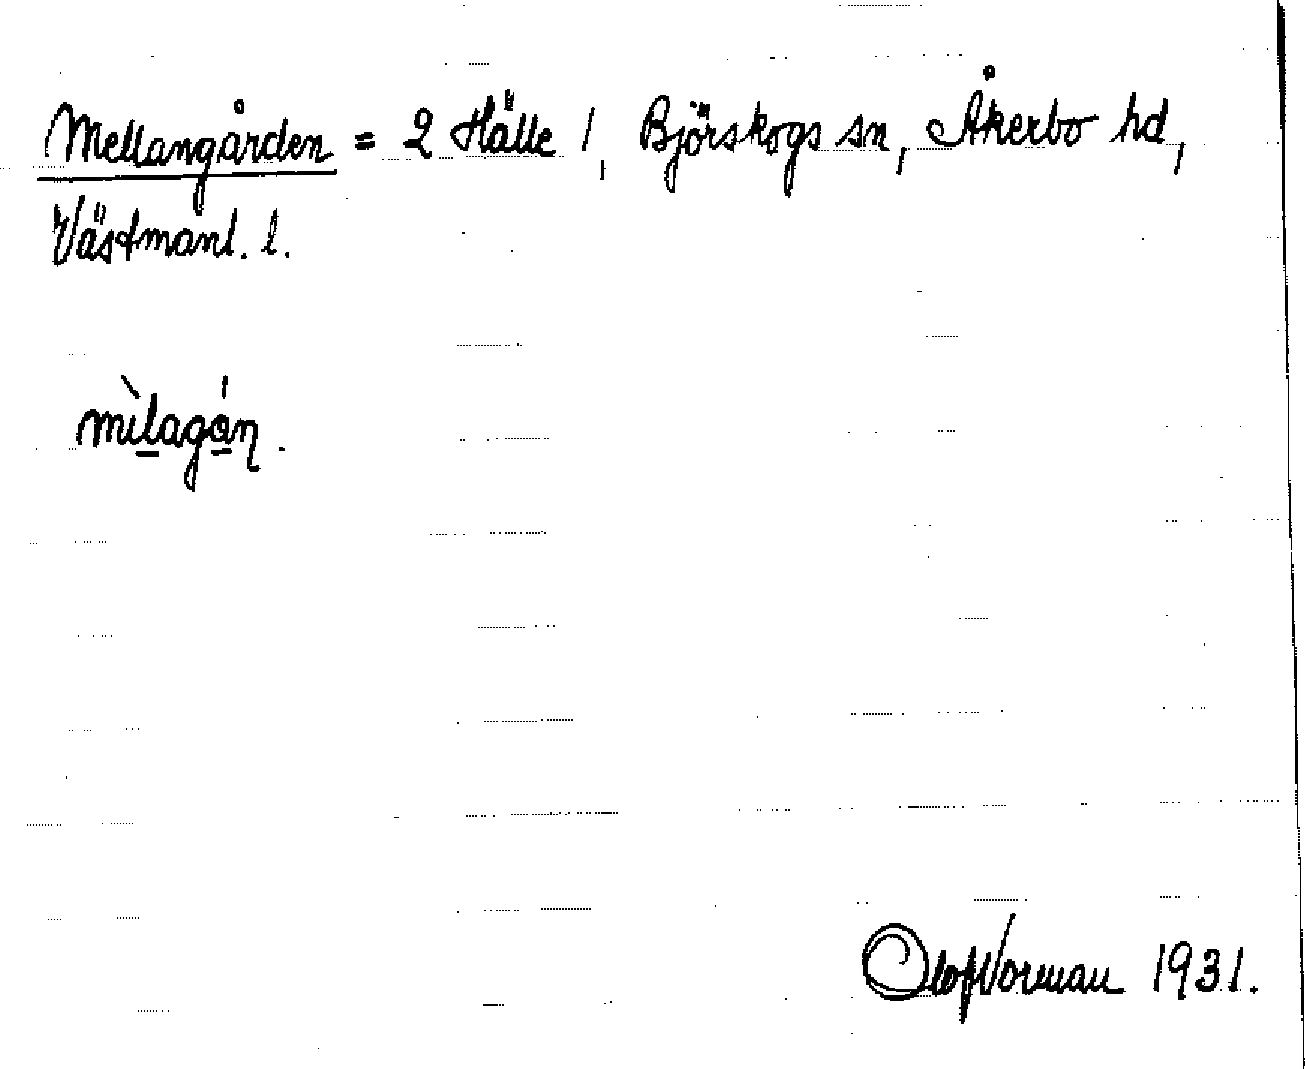 Mellangården = 2 Hälle 1, Björskogs sn, Åkerbo hd,
Västmanl. l.
mìlagán.
Olof Norman 1931.